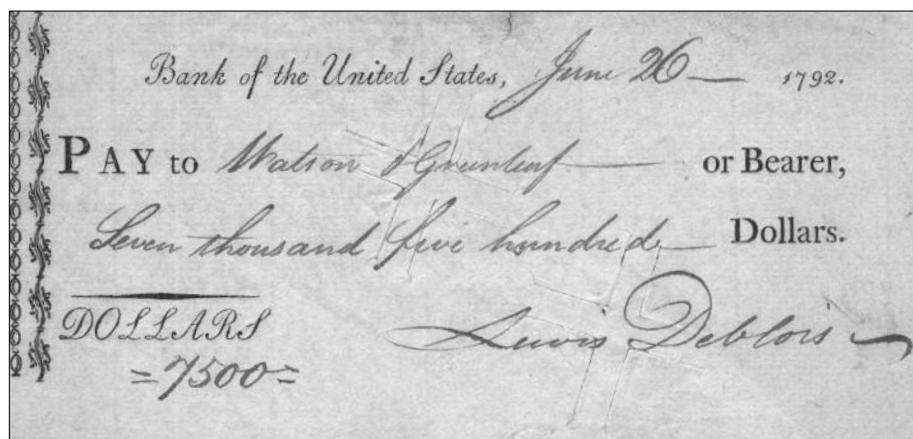 Bank of the United States, June 26 — 1792.
PAY to Watson & Greenleaf — or Bearer,
Seven thousand five hundred — Dollars.
DOLLARS Lewis Deblois
=7500=